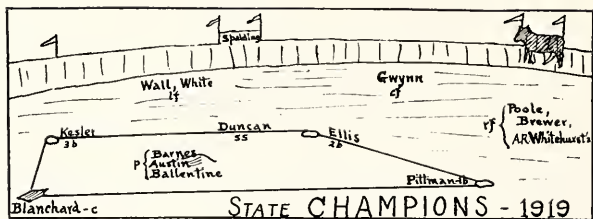 Spalding
Wall, White
lf
Gwynn
cf
rf { Poole,
Brewer,
A.R. Whitehurst's
Kesler
3b
Duncan
ss
Ellis
2b
p { Barnes
Austin
Ballentine
Pittman-1b
Blanchard-c
STATE CHAMPIONS - 1919